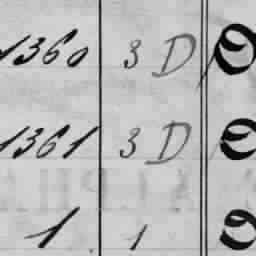 1360 3 D
1361 3 D
1 1